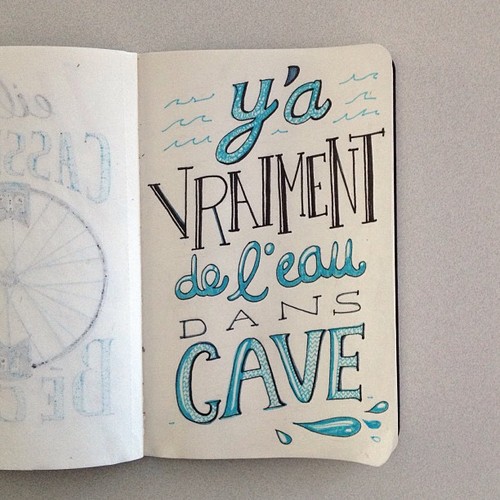 y'a
VRAIMENT
de l'eau
DANS
CAVE